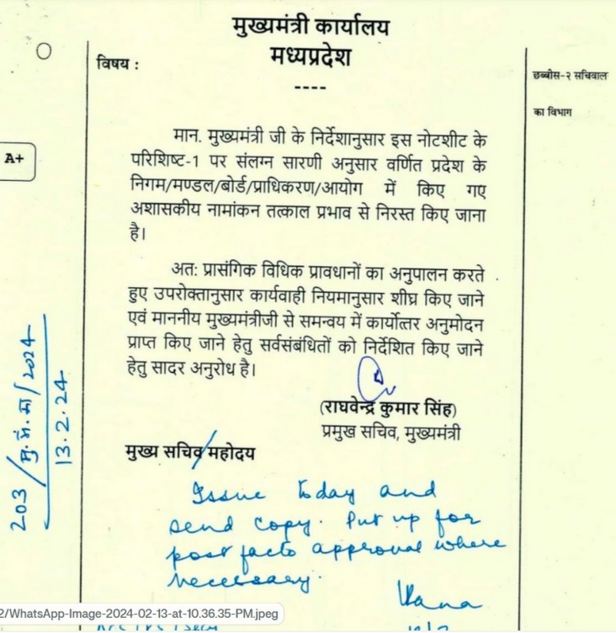 मुख्यमंत्री कार्यालय
मध्यप्रदेश
----
विषय :
छब्बीस-२ सचिवाल
का विभाग
A+
मान. मुख्यमंत्री जी के निर्देशानुसार इस नोटशीट के
परिशिष्ट-1 पर संलग्न सारणी अनुसार वर्णित प्रदेश के
निगम/मण्डल/बोर्ड/प्राधिकरण/आयोग में किए गए
अशासकीय नामांकन तत्काल प्रभाव से निरस्त किए जाना
है।
अत: प्रासंगिक विधिक प्रावधानों का अनुपालन करते
हुए उपरोक्तानुसार कार्यवाही नियमानुसार शीघ्र किए जाने
एवं माननीय मुख्यमंत्रीजी से समन्वय में कार्योत्तर अनुमोदन
प्राप्त किए जाने हेतु सर्वसंबंधितों को निर्देशित किए जाने
हेतु सादर अनुरोध है।
(राघवेन्द्र कुमार सिंह)
प्रमुख सचिव, मुख्यमंत्री
मुख्य सचिव महोदय
203/मु.मं.का/2024
13.2.24
Issue today and
send copy. Put up for
post facto approval where
necessary.
2/WhatsApp-Image-2024-02-13-at-10.36.35-PM.jpeg